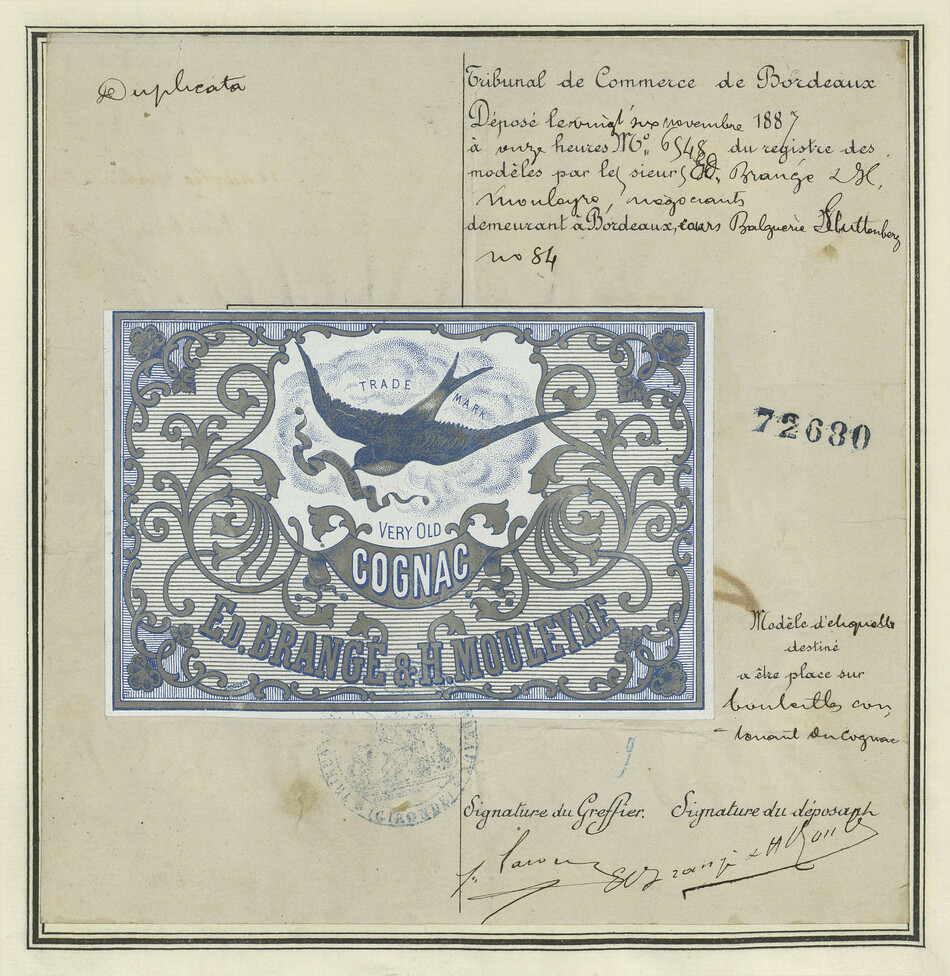 Duplicata
Tribunal de Commerce de Bordeaux
Déposé le vingt six novembre 1887
à onze heures No. 6548 du registre des
modèles par les sieurs Ed. Brangé & H.
Mouleyre, négociants
demeurant à Bordeaux, cours Balguerie Stuttenberg
no 84
TRADE MARK
VERY OLD
COGNAC
ED. BRANGÉ & H. MOULEYRE
72680
Modèle d'etiquette
destiné
a être place sur
bouteilles con
tenant du Cognac
TRIBUNAL
GIRONDE
Signature du Greffier. Signature du déposant